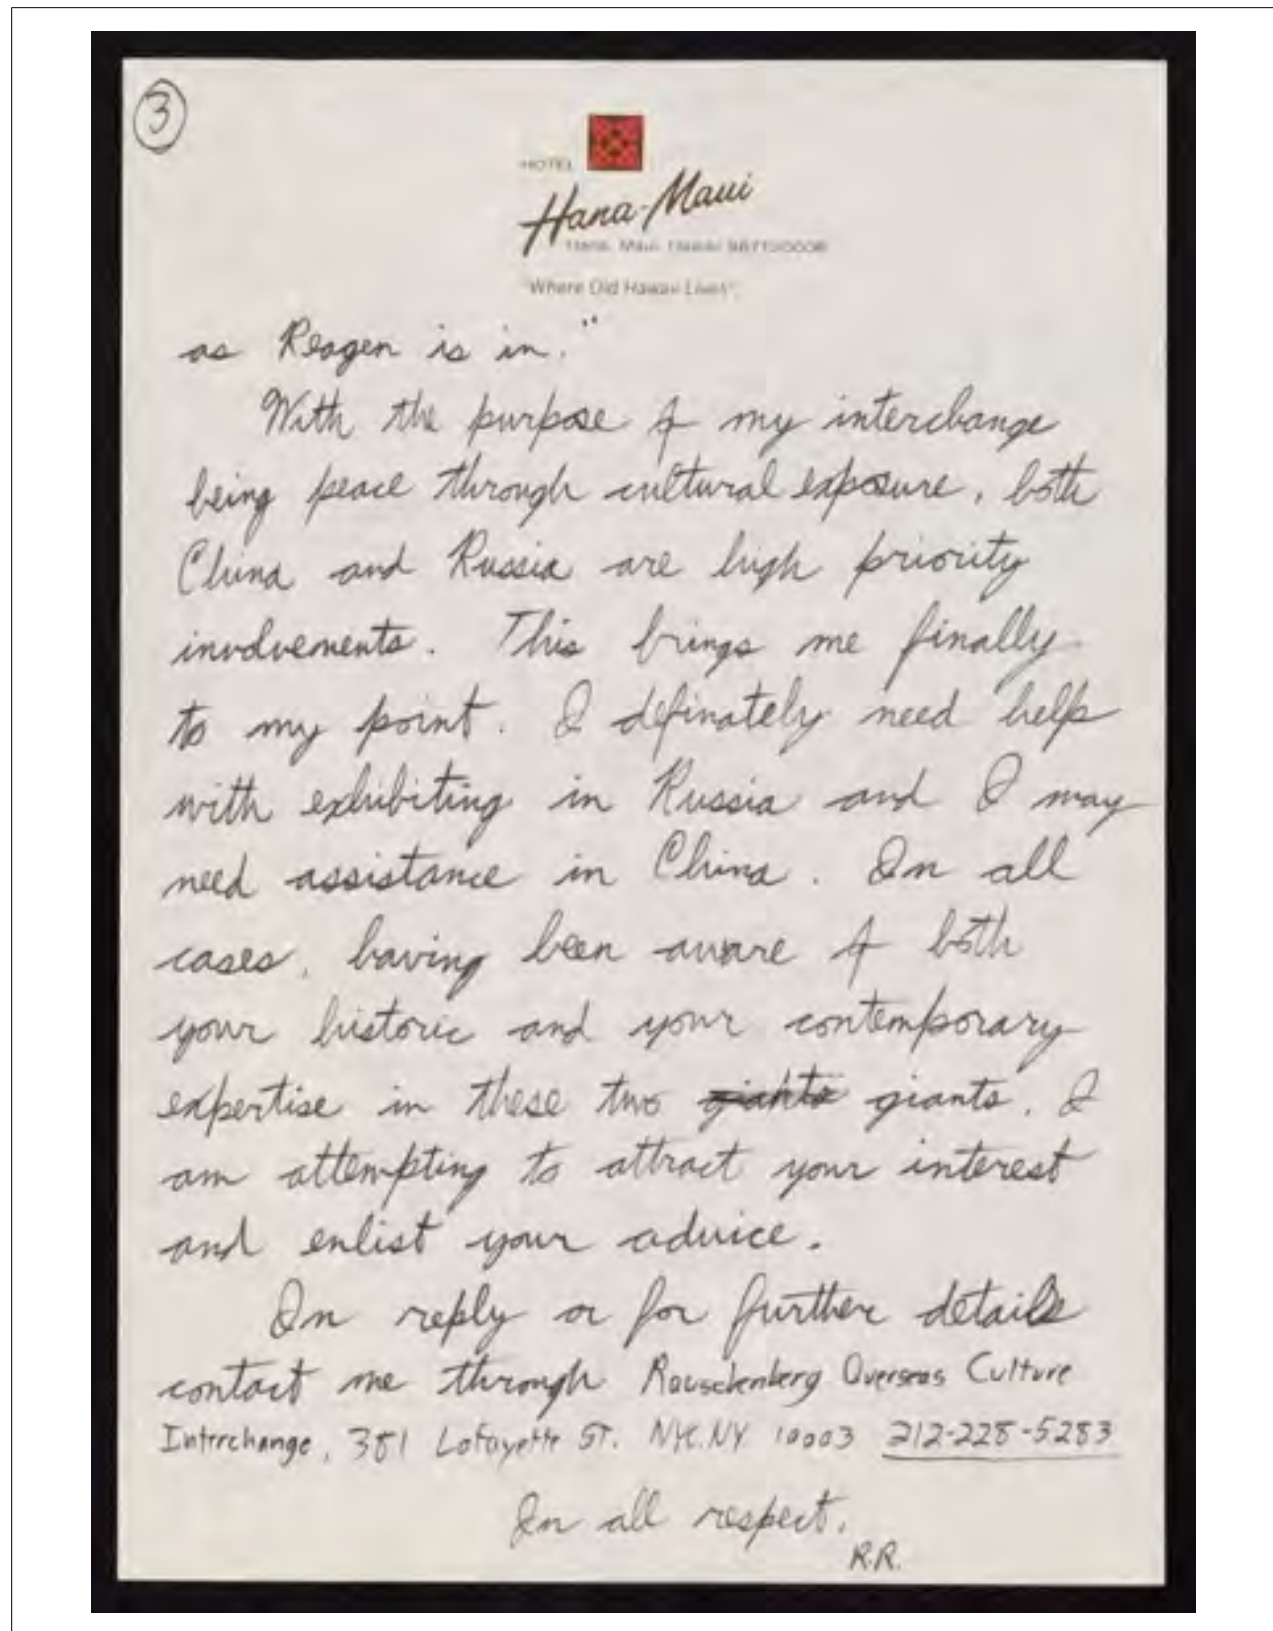 3
HOTEL
Hana-Maui
Hana, Maui, Hawaii 96713/0008
"Where Old Hawaii Lives".
as Reagen is in."
With the purpose of my interchange
being peace through cultural exposure, both
China and Russia are high priority
involvements. This brings me finally
to my point. I definately need help
with exhibiting in Russia and I may
need assistance in China. In all
cases, having been aware of both
your historic and your contemporary
expertise in these two giants giants. I
am attempting to attract your interest
and enlist your advice.
In reply or for further details
contact me through Rauschenberg Overseas Culture
Interchange, 381 Lafayette ST. NYC. NY. 10003 212-228-5283
In all respect,
R.R.